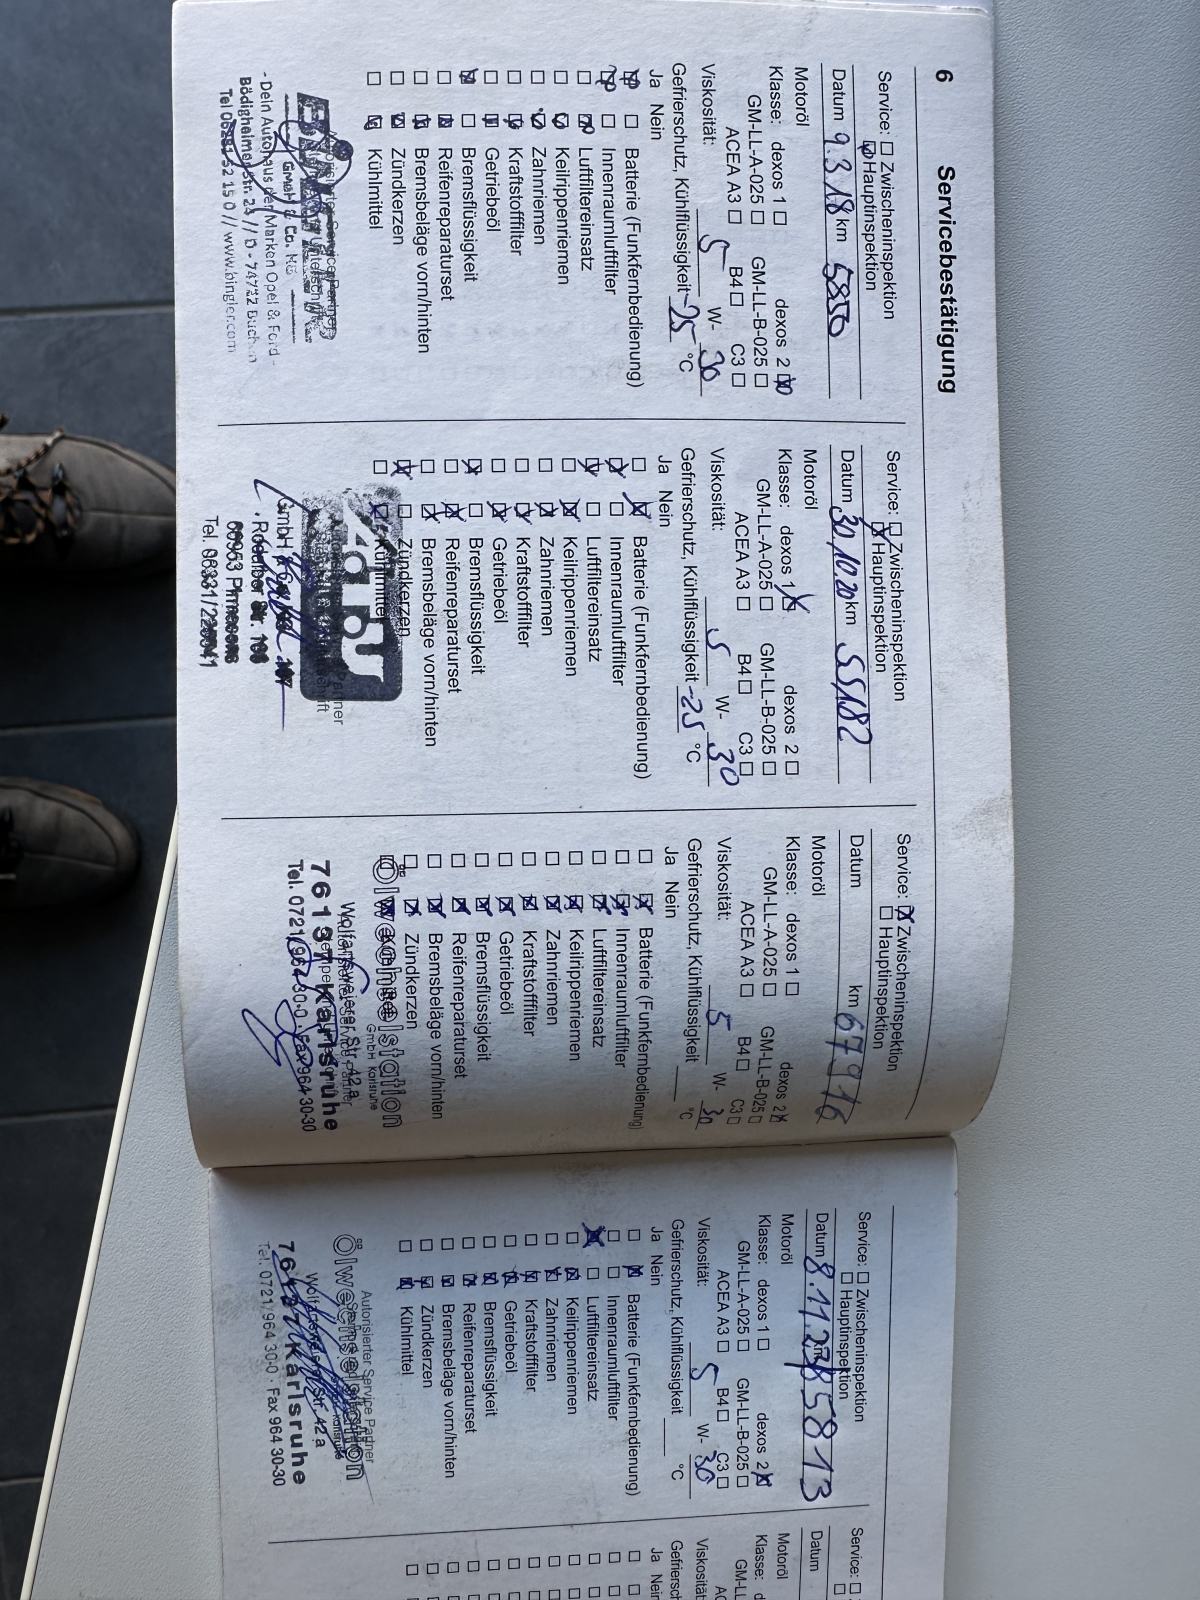 6
Servicebestätigung
Service: ☐ Zwischeninspektion
☒ Hauptinspektion
Datum 9.3.18 km 5850
Motoröl
Klasse: dexos 1 ☐ dexos 2 ☒
GM-LL-A-025 ☐ GM-LL-B-025 ☐
ACEA A3 ☐ B4 ☐ C3 ☐
Viskosität: 5 W- 30
Gefrierschutz, Kühlflüssigkeit -25 °C
Ja Nein
☒ ☐ Batterie (Funkfernbedienung)
☒ ☐ Innenraumluftfilter
☐ ☒ Luftfiltereinsatz
☐ ☒ Keilrippenriemen
☐ ☒ Zahnriemen
☐ ☒ Kraftstofffilter
☐ ☒ Getriebeöl
☒ ☐ Bremsflüssigkeit
☐ ☒ Reifenreparaturset
☐ ☒ Bremsbeläge vorn/hinten
☐ ☒ Zündkerzen
☐ ☒ Kühlmittel
GmbH & Co. KG
- Dein Autohaus der Marken Opel & Ford -
Bödigheimer Str. 23 // D - 74722 Buchen
Tel 06281 52 15 0 // www.bingler.com
Service: ☐ Zwischeninspektion
☒ Hauptinspektion
Datum 30.10.20 km 55182
Motoröl
Klasse: dexos 1 ☒ dexos 2 ☐
GM-LL-A-025 ☐ GM-LL-B-025 ☐
ACEA A3 ☐ B4 ☐ C3 ☐
Viskosität: 5 W- 30
Gefrierschutz, Kühlflüssigkeit -25 °C
Ja Nein
☐ ☒ Batterie (Funkfernbedienung)
☒ ☐ Innenraumluftfilter
☒ ☐ Luftfiltereinsatz
☐ ☒ Keilrippenriemen
☐ ☒ Zahnriemen
☐ ☒ Kraftstofffilter
☐ ☒ Getriebeöl
☒ ☐ Bremsflüssigkeit
☐ ☒ Reifenreparaturset
☐ ☒ Bremsbeläge vorn/hinten
☒ ☐ Zündkerzen
☐ ☒ Kühlmittel
GmbH
66953 Pirmasens
Tel. 06331/
Service: ☒ Zwischeninspektion
☐ Hauptinspektion
Datum km 67916
Motoröl
Klasse: dexos 1 ☐ dexos 2 ☒
GM-LL-A-025 ☐ GM-LL-B-025 ☐
ACEA A3 ☐ B4 ☐ C3 ☐
Viskosität: 5 W- 30
Gefrierschutz, Kühlflüssigkeit °C
Ja Nein
☐ ☒ Batterie (Funkfernbedienung)
☐ ☒ Innenraumluftfilter
☐ ☒ Luftfiltereinsatz
☐ ☒ Keilrippenriemen
☐ ☒ Zahnriemen
☐ ☒ Kraftstofffilter
☐ ☒ Getriebeöl
☐ ☒ Bremsflüssigkeit
☐ ☒ Reifenreparaturset
☐ ☒ Bremsbeläge vorn/hinten
☐ ☒ Zündkerzen
☐ ☒ Kühlmittel
Ölwechselstation
GmbH Karlsruhe
Wolfartsweierer Str. 42 a
76137 Karlsruhe
Tel. 0721/964 30-0 · Fax 964 30-30
Service: ☐ Zwischeninspektion
☐ Hauptinspektion
Datum 8.11.23 km 85813
Motoröl
Klasse: dexos 1 ☐ dexos 2 ☒
GM-LL-A-025 ☐ GM-LL-B-025 ☐
ACEA A3 ☐ B4 ☐ C3 ☐
Viskosität: 5 W- 30
Gefrierschutz, Kühlflüssigkeit °C
Ja Nein
☐ ☒ Batterie (Funkfernbedienung)
☐ ☐ Innenraumluftfilter
☒ ☐ Luftfiltereinsatz
☐ ☒ Keilrippenriemen
☐ ☒ Zahnriemen
☐ ☒ Kraftstofffilter
☐ ☒ Getriebeöl
☐ ☒ Bremsflüssigkeit
☐ ☒ Reifenreparaturset
☐ ☒ Bremsbeläge vorn/hinten
☐ ☒ Zündkerzen
☐ ☒ Kühlmittel
Autorisierter Service Partner
Ölwechselstation
Wolfartsweierer Str. 42 a
76137 Karlsruhe
Tel. 0721/964 30-0 · Fax 964 30-30
Service: ☐
☐
Datum
Motoröl
Klasse: d
GM-LL
AC
Viskosität
Gefriersch
Ja Nein